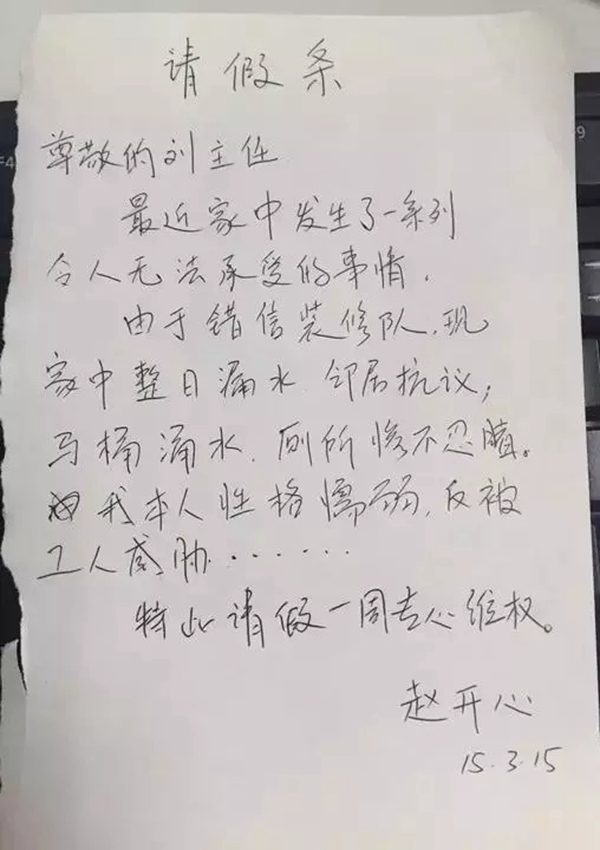 请假条
尊敬的刘主任
最近家中发生了一系列
令人无法承受的事情.
由于错信装修队,现
家中整日漏水.邻居抗议;
马桶涌水.厕所惨不忍睹。
我本人性格懦弱,反被
工人威胁·······
特此请假一周专心维权。
赵开心
15.3.15
F4
F9